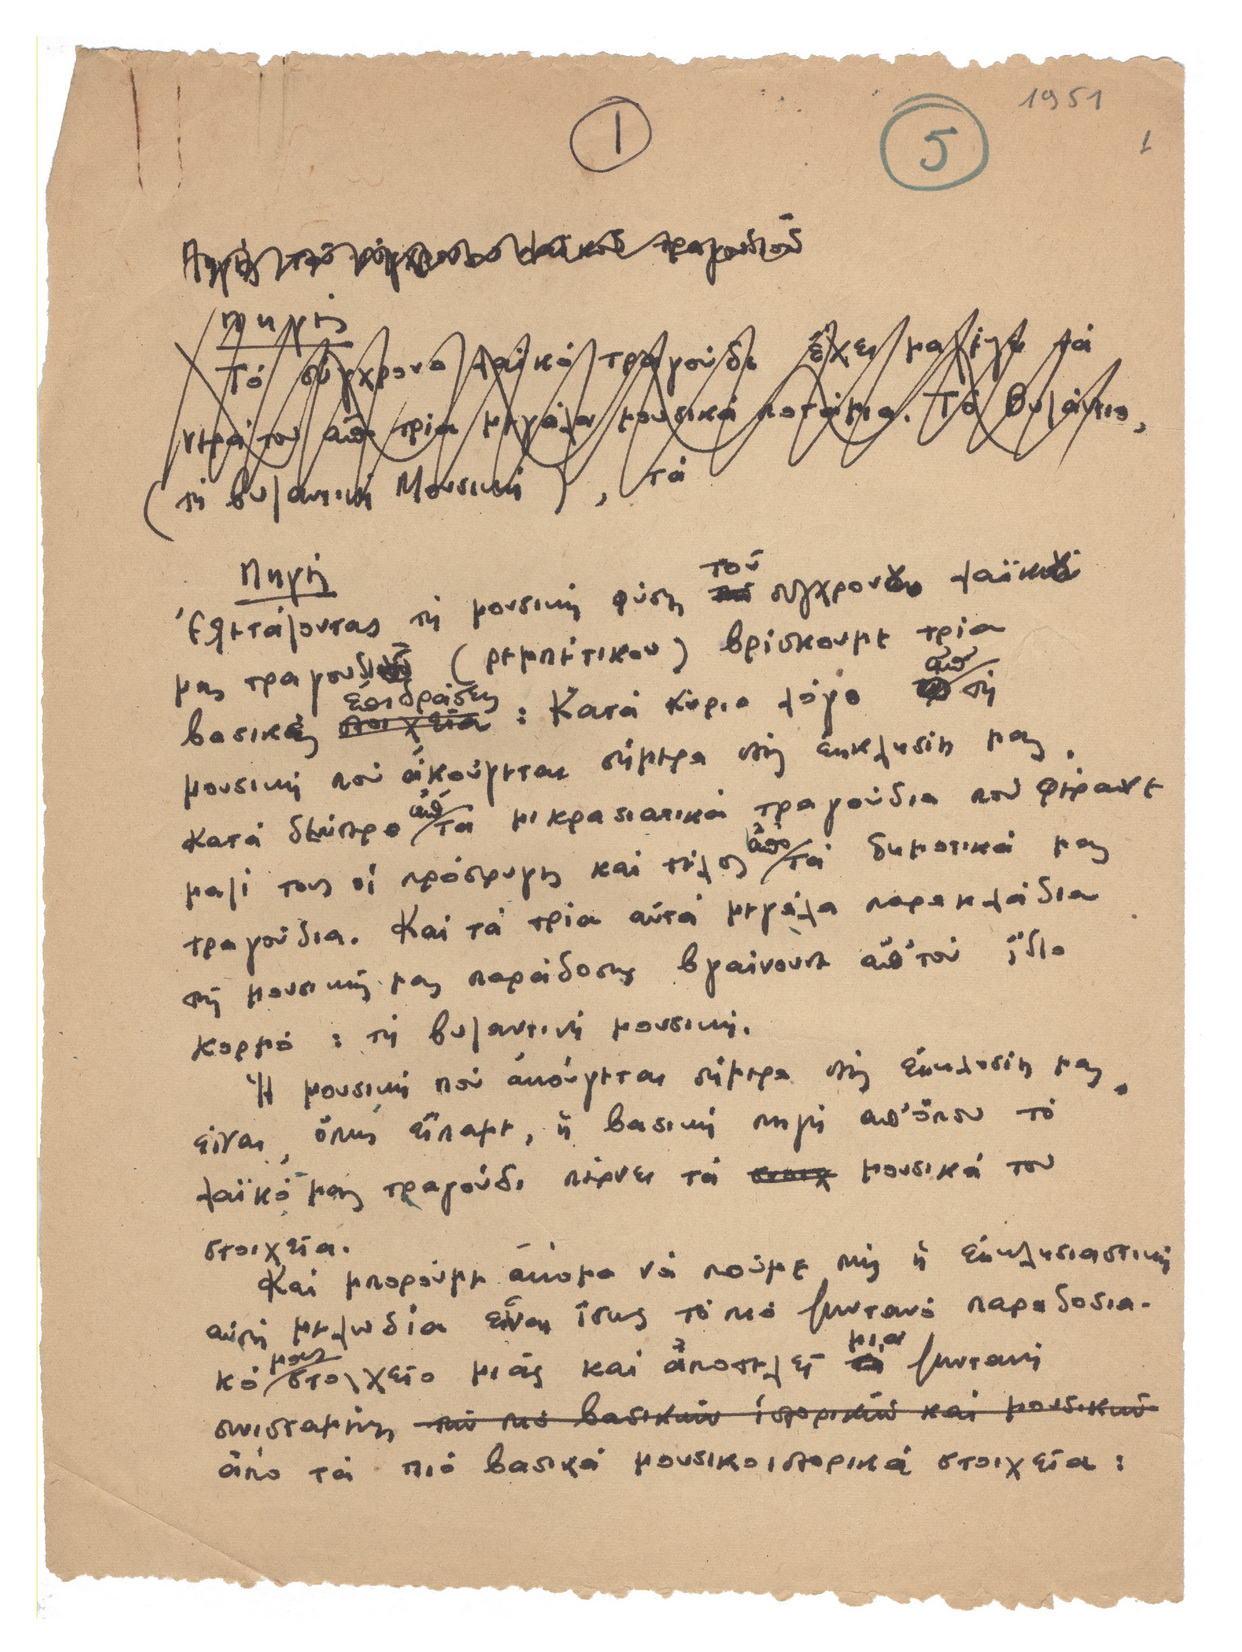 1951
1
5
1
Πηγές τοῦ σύγχρονου λαϊκοῦ τραγουδιοῦ
Πηγές
Τό σύγχρονο λαϊκό τραγούδι ἔχει μαζέψει τά
νερά του ἀπό τρία μεγάλα μουσικά ποτάμια. Τό Βυζάντιο,
(τή βυζαντινή Μουσική), τά
Πηγή
Ἐξετάζοντας τή μουσική φύση τοῦ σύγχρονου λαϊκοῦ
μας τραγουδιοῦ (ρεμπέτικου) βρίσκουμε τρία
ἐπιδράσεις ἀπ'
βασικές στοιχεῖα : Κατά κύριο λόγο τή
μουσική πού ἀκούγεται σήμερα στίς ἐκκλησίες μας,
ἀπ'
κατά δεύτερο τά μικρασιατικά τραγούδια πού φέρανε
ἀπό
μαζί τους οἱ πρόσφυγες καί τέλος τά δημοτικά μας
τραγούδια. Καί τά τρία αὐτά μεγάλα παρακλάδια
τῆς μουσικῆς μας παράδοσης βγαίνουνε ἀπ' τόν ἴδιο
κορμό : τή βυζαντινή μουσική.
Ἡ μουσική πού ἀκούγεται σήμερα στίς ἐκκλησίες μας,
εἶναι, ὅπως εἴπαμε, ἡ βασική πηγή ἀπ' ὅπου τό
λαϊκό μας τραγούδι παίρνει τά στοιχ μουσικά του
στοιχεῖα.
Καί μποροῦμε ἀκόμα νά ποῦμε πώς ἡ ἐκκλησιαστική
αὐτή μελωδία εἶναι ἴσως τό πιό ζωντανό παραδοσια-
μας μιαν
κό στοιχεῖο μιᾶς καί ἀποτελεῖ ζωντανή
συνισταμένη τῶν πιό βασικῶν ἱστορικῶν καί μουσικῶν
ἀπό τά πιό βασικά μουσικοϊστορικά στοιχεῖα :